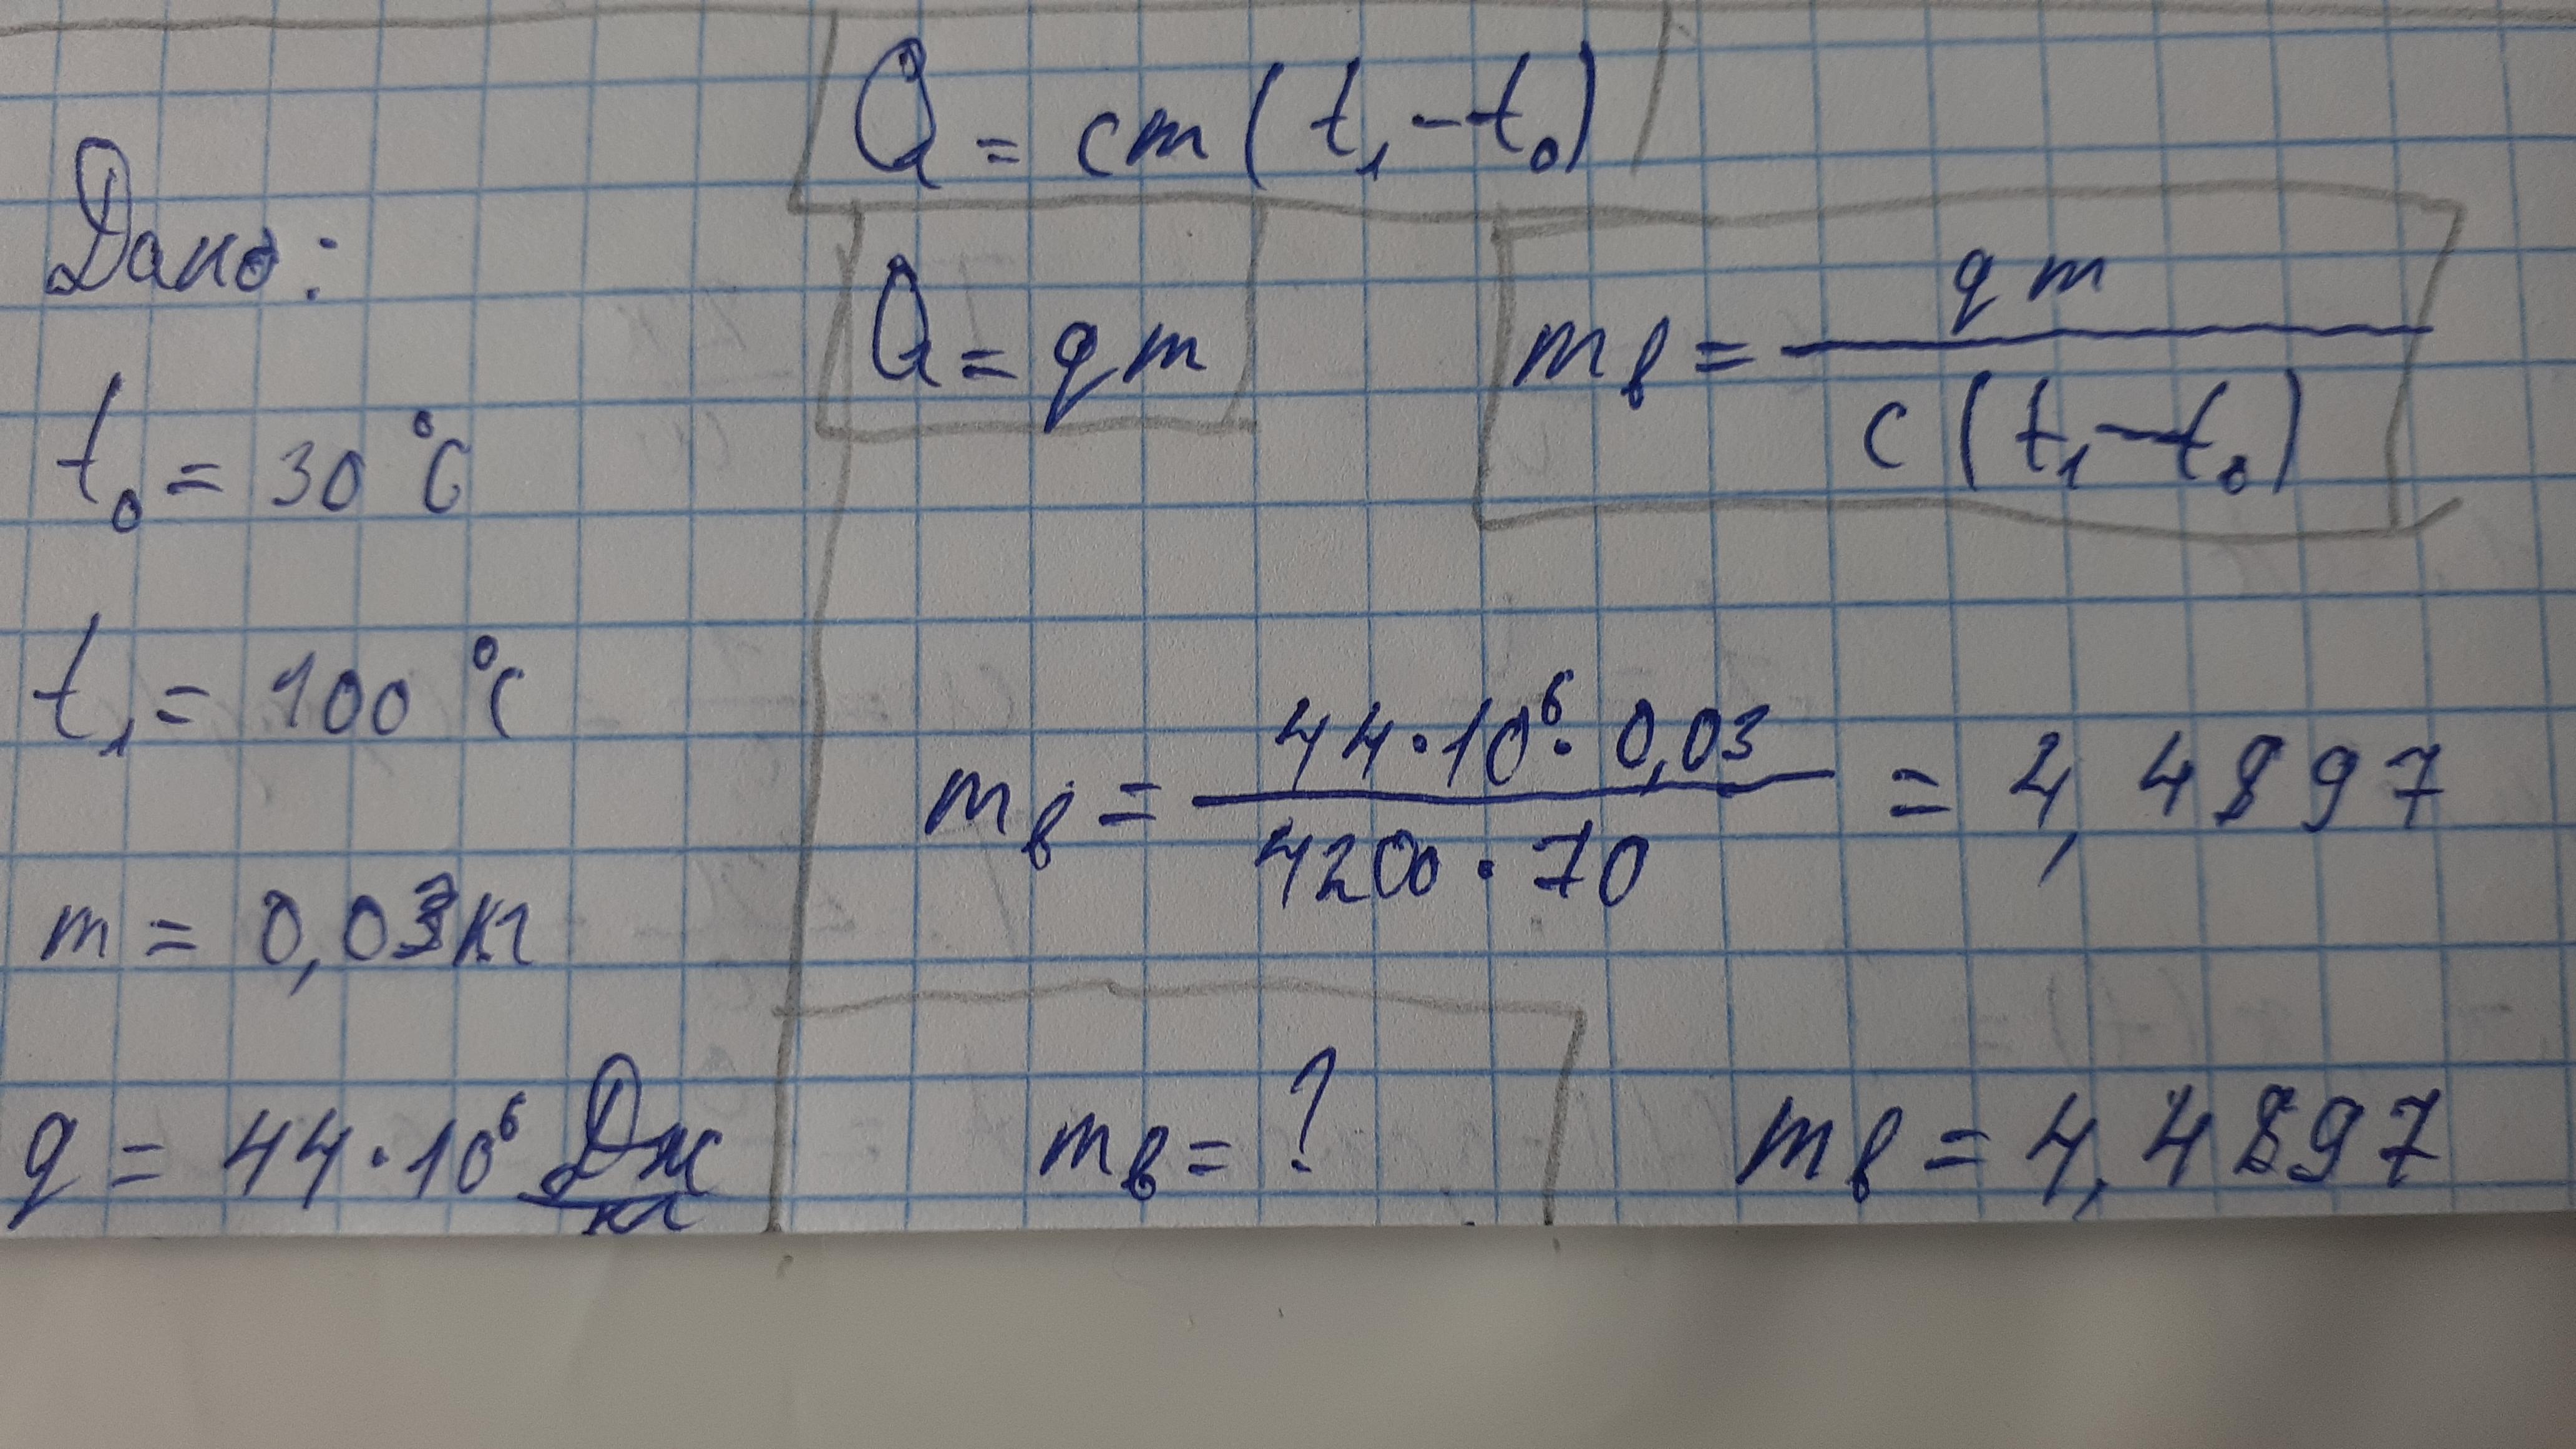 Дано:
t₀ = 30 °C
t₁ = 100 °C
m = 0,03кг
q = 44·10⁶ Дж/кг
Q = cm(t₁-t₀)
Q = qm
mв = qm / c(t₁-t₀)
mв = 44·10⁶·0,03 / 4200·70 = 4,4897
mв = ?
mв = 4,4897